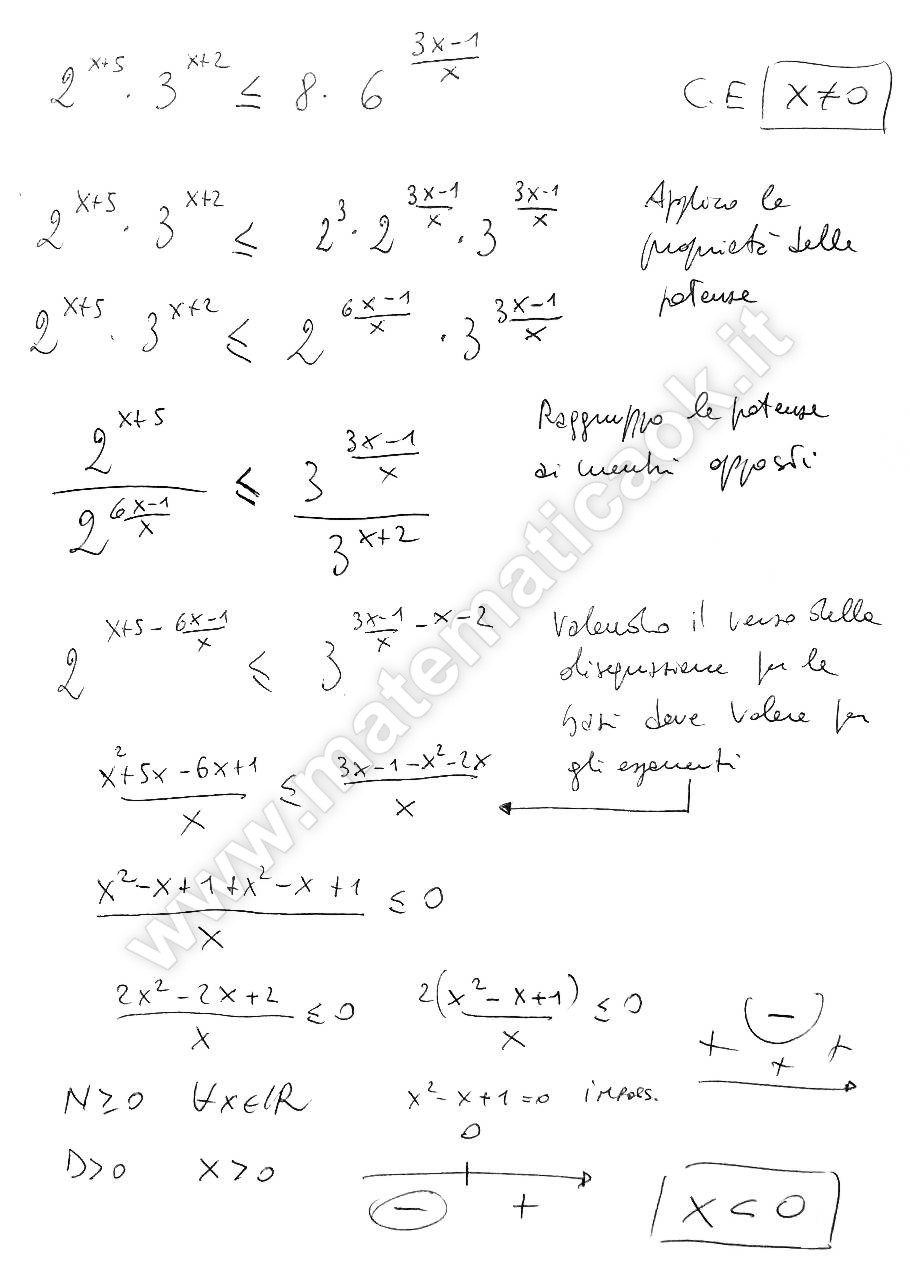 2^{x+5} · 3^{x+2} ≤ 8 · 6^{\frac{3x-1}{x}}
C.E x≠0
2^{x+5} · 3^{x+2} ≤ 2^3 · 2^{\frac{3x-1}{x}} · 3^{\frac{3x-1}{x}}
Applico le
proprietà delle
potenze
2^{x+5} · 3^{x+2} ≤ 2^{\frac{6x-1}{x}} · 3^{\frac{3x-1}{x}}
\frac{2^{x+5}}{2^{\frac{6x-1}{x}}} ≤ \frac{3^{\frac{3x-1}{x}}}{3^{x+2}}
Raggruppo le potenze
ai membri opposti
2^{x+5-\frac{6x-1}{x}} ≤ 3^{\frac{3x-1}{x}-x-2}
Valendo il verso della
disequazione per le
basi deve valere per
gli esponenti
\frac{x^2+5x-6x+1}{x} ≤ \frac{3x-1-x^2-2x}{x}
\frac{x^2-x+1+x^2-x+1}{x} ≤ 0
\frac{2x^2-2x+2}{x} ≤ 0 \frac{2(x^2-x+1)}{x} ≤ 0
+ - +
+
N≥0 ∀x∈ℝ x^2-x+1=0 imposs.
D>0 x>0
0
- +
x<0
www.matematicaok.it